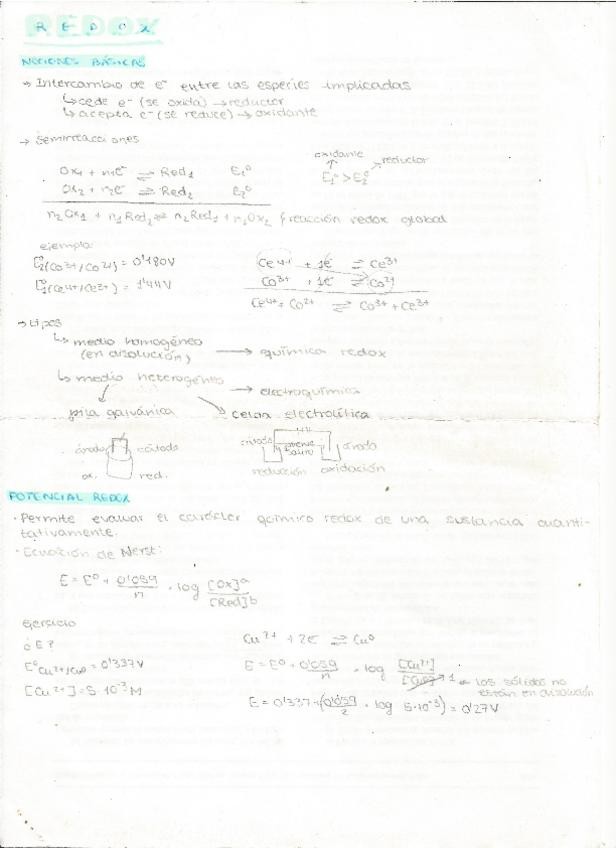 REDOX
NOCIONES BÁSICAS
→ Intercambio de e⁻ entre las especies implicadas
↳ cede e⁻ (se oxida) → reductor
↳ acepta e⁻ (se reduce) → oxidante
→ Semirreacciones
oxidante reductor
Ox₁ + n₁e⁻ ⇌ Red₁ E₁⁰ E₁⁰ > E₂⁰
Ox₂ + n₂e⁻ ⇌ Red₂ E₂⁰
n₂Ox₁ + n₁Red₂ ⇌ n₂Red₁ + n₁Ox₂ } reacción redox global
ejemplo:
(Co³⁺/Co²⁺) = 0'180V Ce⁴⁺ + 1e⁻ ⇌ Ce³⁺
(Ce⁴⁺/Ce³⁺) = 1'44V Co³⁺ + 1e⁻ ⇌ Co²⁺
Ce⁴⁺ + Co²⁺ ⇌ Co³⁺ + Ce³⁺
→ tipos
↳ medio homogéneo
(en disolución) → química redox
↳ medio heterogéneo → electroquímica
pila galvánica celda electrolítica
ánodo cátodo cátodo puente salino ánodo
ox. red. reducción oxidación
POTENCIAL REDOX
· Permite evaluar el carácter químico redox de una sustancia cuanti-
tativamente.
· Ecuación de Nerst:
E = E⁰ + 0'059/n · log [Ox]ᵃ/[Red]ᵇ
ejercicio
¿E? Cu²⁺ + 2e⁻ ⇌ Cu⁰
E⁰Cu²⁺/Cu⁰ = 0'337V E = E⁰ + 0'059/n · log [Cu²⁺]/[Cu⁰] 1 ← los sólidos no
están en disolución
[Cu²⁺] = 5·10⁻³M E = 0'337 + (0'059/2 · log 5·10⁻³) = 0'27V